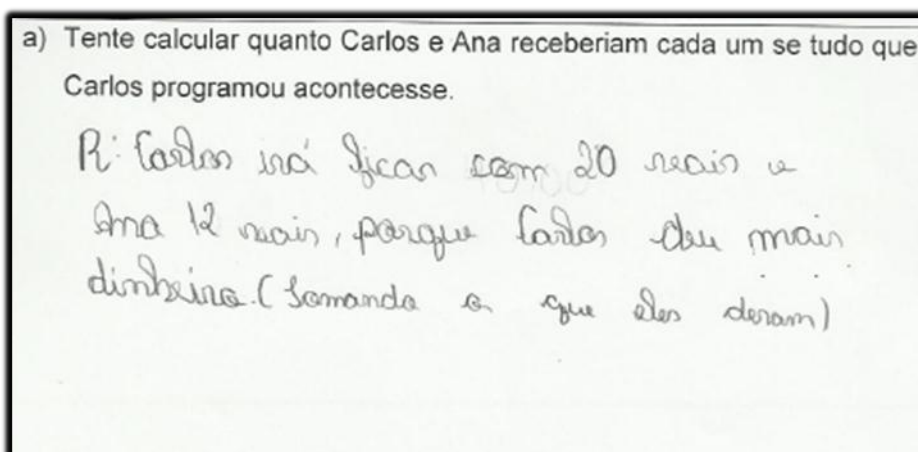 a) Tente calcular quanto Carlos e Ana receberiam cada um se tudo que
Carlos programou acontecesse.
R: Carlos irá ficar com 20 reais e
Ana 12 reais, porque Carlos deu mais
dinheiro. (Somando o que eles deram)